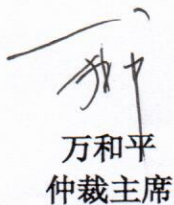 万和平
仲裁主席